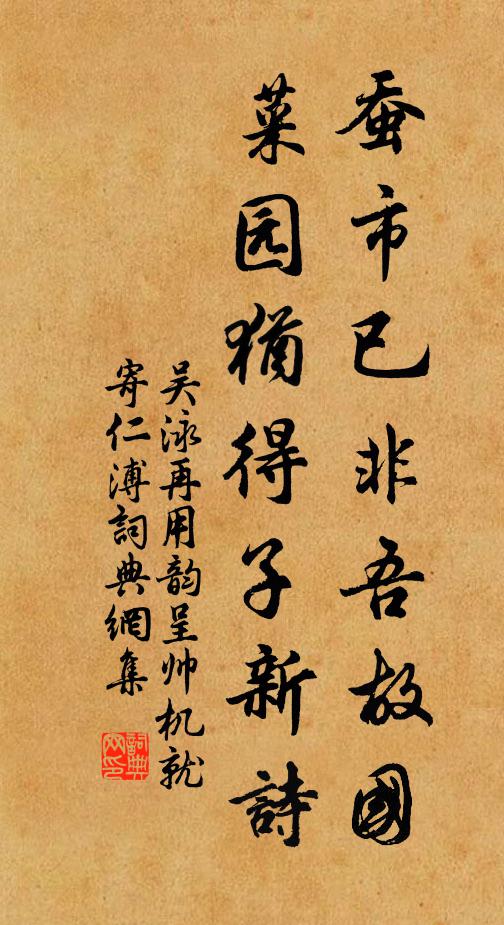 蚕市已非吾故國
菜园猶得子新詩
吴泳再用韵呈帅机就
寄仁溥詞典網集
詞典
网印